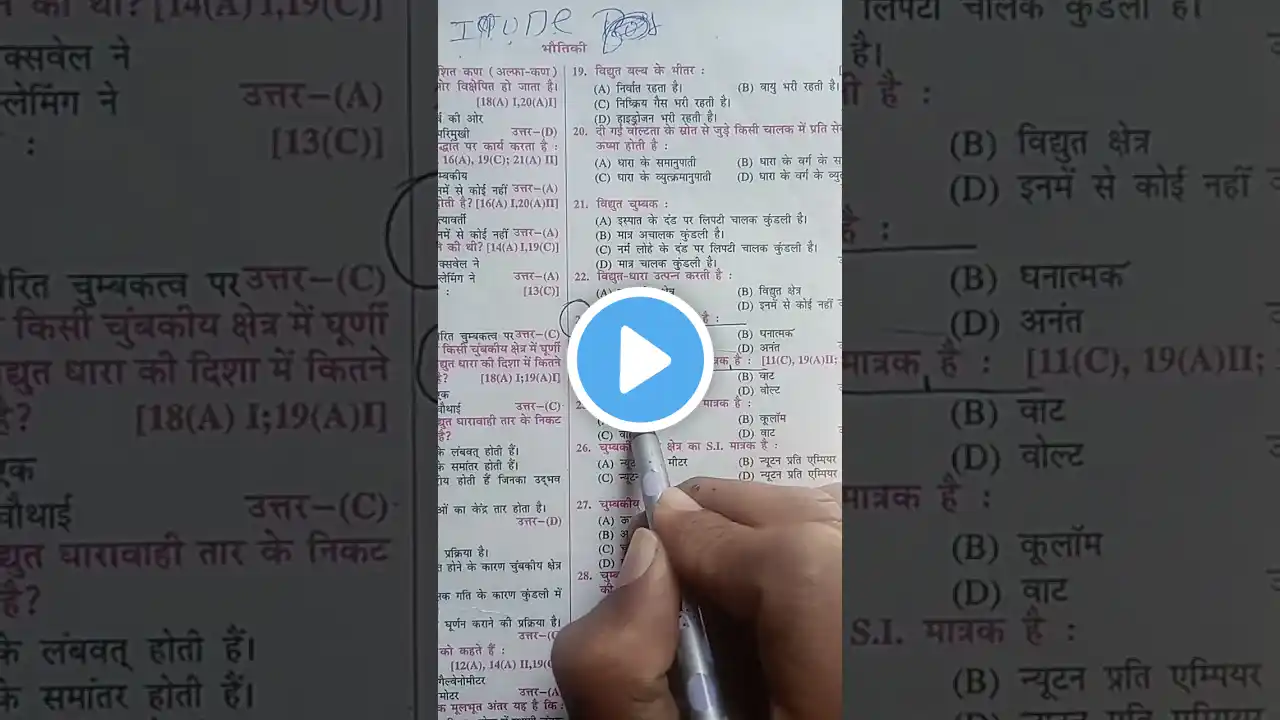 भौतिकी
शित कण (अल्फा-कण)
ोर विक्षेपित हो जाता है।
[18(A) I,20(A)I]
र्व की ओर
परिमुखी उत्तर–(D)
द्धांत पर कार्य करता है :
16(A), 19(C); 21(A) II]
म्बकीय
नमें से कोई नहीं उत्तर–(A)
होती है? [16(A) I,20(A)II]
त्यावर्ती
नमें से कोई नहीं उत्तर–(A)
ने की थी? [14(A) I,19(C)]
क्सवेल ने
लेमिंग ने उत्तर–(A)
: [13(C)]
रित चुम्बकत्व पर उत्तर–(C)
किसी चुंबकीय क्षेत्र में घूर्णी
द्युत धारा की दिशा में कितने
है? [18(A) I;19(A)I]
एक
चौथाई उत्तर–(C)
द्युत धारावाही तार के निकट
है?
के लंबवत् होती हैं।
के समांतर होती हैं।
ीय होती हैं जिनका उद्भव
ओं का केंद्र तार होता है।
उत्तर–(D)
प्रक्रिया है।
त होने के कारण चुंबकीय क्षेत्र
क गति के कारण कुंडली में
घूर्णन कराने की प्रक्रिया है।
को कहते हैं :
[12(A), 14(A) II,19(
गैल्वेनोमीटर
मोटर उत्तर–(A
क मूलभूत अंतर यह है कि :
19. विद्युत बल्ब के भीतर :
(A) निर्वात रहता है। (B) वायु भरी रहती है।
(C) निष्क्रिय गैस भरी रहती है।
(D) हाइड्रोजन भरी रहती है।
20. दी गई वोल्टता के स्रोत से जुड़े किसी चालक में प्रति से
ऊष्मा होती है :
(A) धारा के समानुपाती (B) धारा के वर्ग के स
(C) धारा के व्युत्क्रमानुपाती (D) धारा के वर्ग के व्यु
21. विद्युत चुम्बक :
(A) इस्पात के दंड पर लिपटी चालक कुंडली है।
(B) मात्र अचालक कुंडली है।
(C) नर्म लोहे के दंड पर लिपटी चालक कुंडली है।
(D) मात्र चालक कुंडली है।
22. विद्युत-धारा उत्पन्न करती है :
(B) विद्युत क्षेत्र
(D) इनमें से कोई नहीं
है :
(B) घनात्मक
(D) अनंत
मात्रक है : [11(C), 19(A)II;
(B) वाट
(D) वोल्ट
मात्रक है :
(B) कूलॉम
(D) वाट
26. क्षेत्र का S.I. मात्रक है :
(A) मीटर (B) न्यूटन प्रति एम्पियर
(C) (D) न्यूटन प्रति एम्पियर
27. चुम्बकीय
(A)
(B)
(C)
(D)
28.